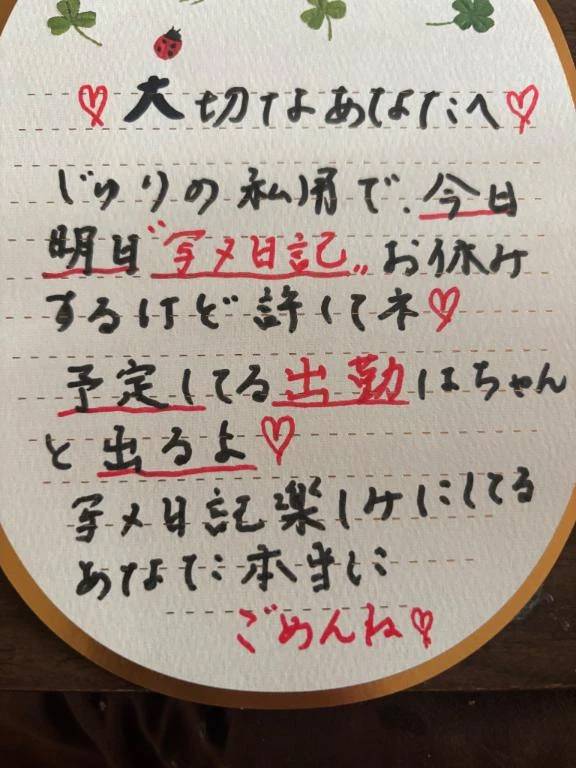 ♡大切なあなたへ♡
じゅりの私用で、今日
明日〝写メ日記〟お休み
するけど許してネ♡
予定してる出勤はちゃん
と出るよ♡
写メ日記楽しみにしてる
あなた本当に
ごめんね♡